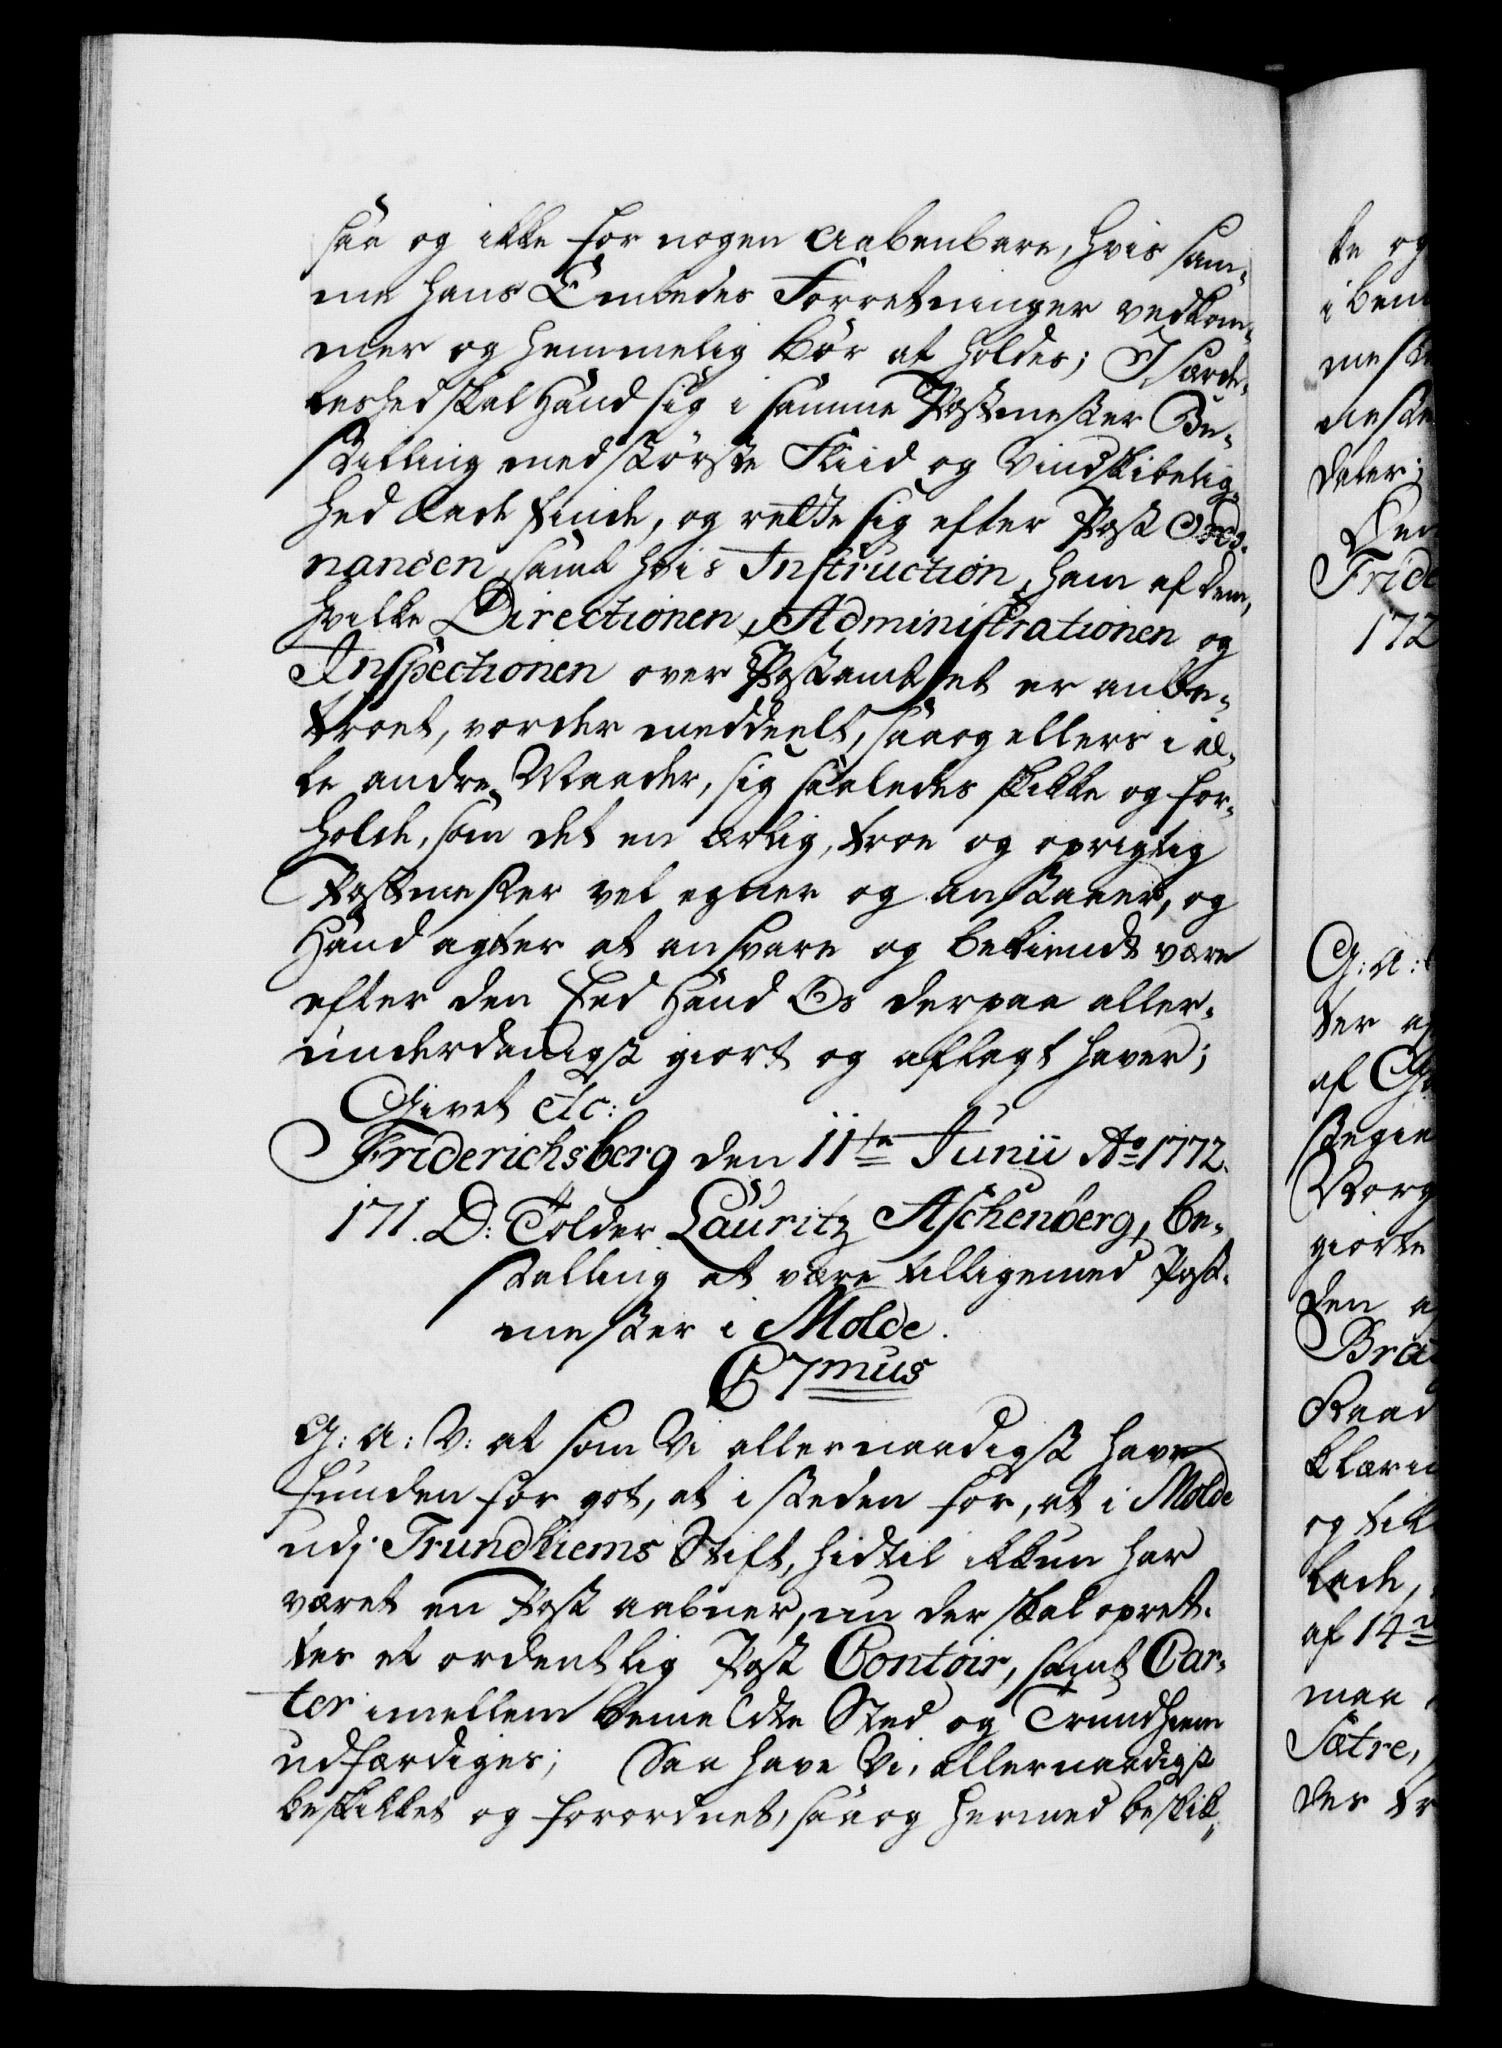 saa og ikke for nogen aabenbare, hvis sam-
me hans Embedes Forretninger vedkom-
mer og hemmelig bör at holdes; Isærde-
leshed skal Hand sig i samme Postmester Be-
stilling med störste Fliid og Vindskibelig-
hed lade finde, og rette sig efter Post Ordo-
nancen, samt hvis Instruction, ham af dem,
hvilke Directionen, Administrationen og
Inspectionen over Postamtet er anbe-
troet, vorder meddeelt, saa og ellers i al-
le andre Maader, sig saaledes skikke og for-
holde, som det en ærlig, troe og oprigtig
Postmester vel egner og anstaaer, og
Hand agter at ansvare og bekiendt være
efter den Eed Hand Os derpaa aller-
underdanigst giort og aflagt haver;
Givet etc:
Friderichsberg den 11te Junii Ao 1772.
171. D: Tolder Lauritz Aschenberg, be-
stalling at være tilligemed Post-
mester i Molde.
C 7mus
G: A: V: at som Vi allernaadigst have
funden for got, at i steden for, at i Molde
udj Trundhiems Stift, hidtil ikkun har
været en Post aabner, nu der skal opret-
tes et ordentlig Post Contoir, samt Car-
ter imellem bemeldte Sted og Trundhiem
udfærdiges; Saa have Vi, allernaadigst
beskikket og forordnet, saa og hermed beskik-